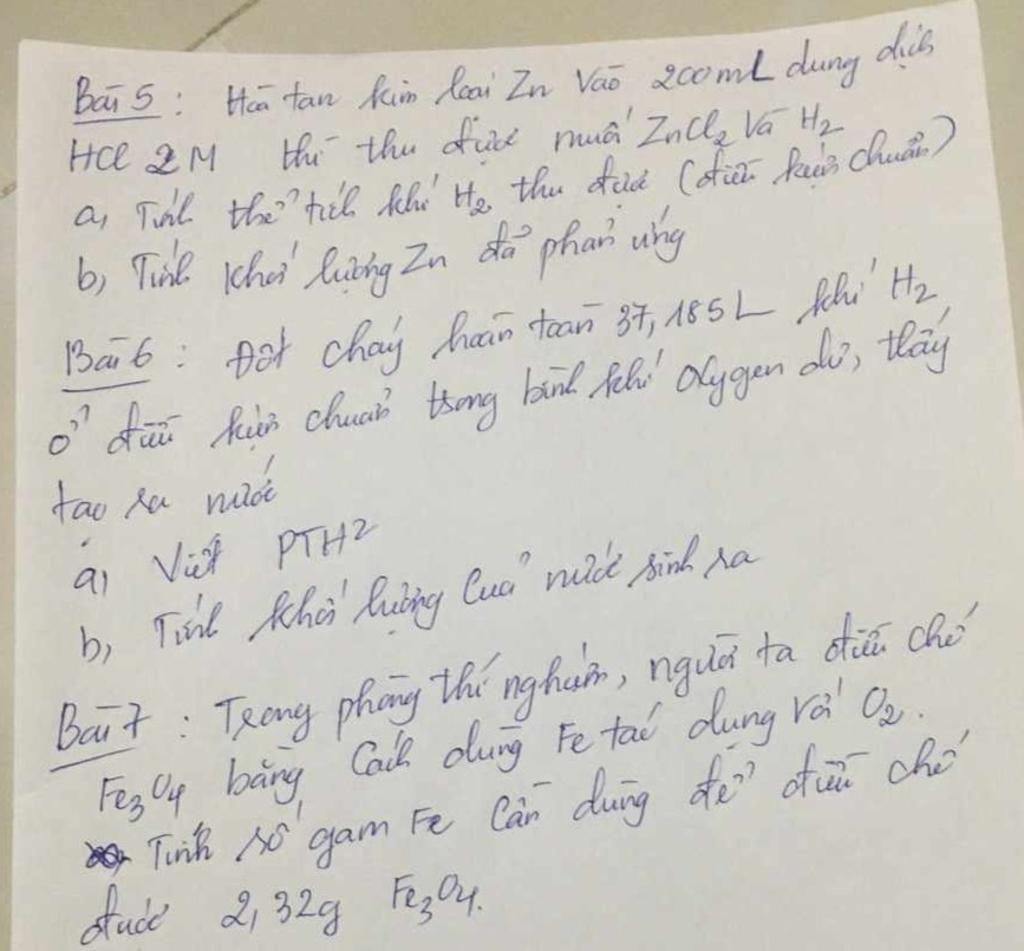 Bài 5 : Hòa tan kim loại Zn vào 200mL dung dịch
HCl 2M thì thu được muối ZnCl2 và H2
a, Tính thể tích khí H2 thu được (điều kiện chuẩn)
b, Tính khối lượng Zn đã phản ứng
Bài 6 : Đốt cháy hoàn toàn 37,185L khí H2
ở điều kiện chuẩn trong bình khí oxygen dư, thấy
tạo ra nước
a, Viết PTHH
b, Tính khối lượng của nước sinh ra
Bài 7 : Trong phòng thí nghiệm, người ta điều chế
Fe3O4 bằng cách dùng Fe tác dụng với O2.
Tính số gam Fe cần dùng để điều chế
được 2,32g Fe3O4.